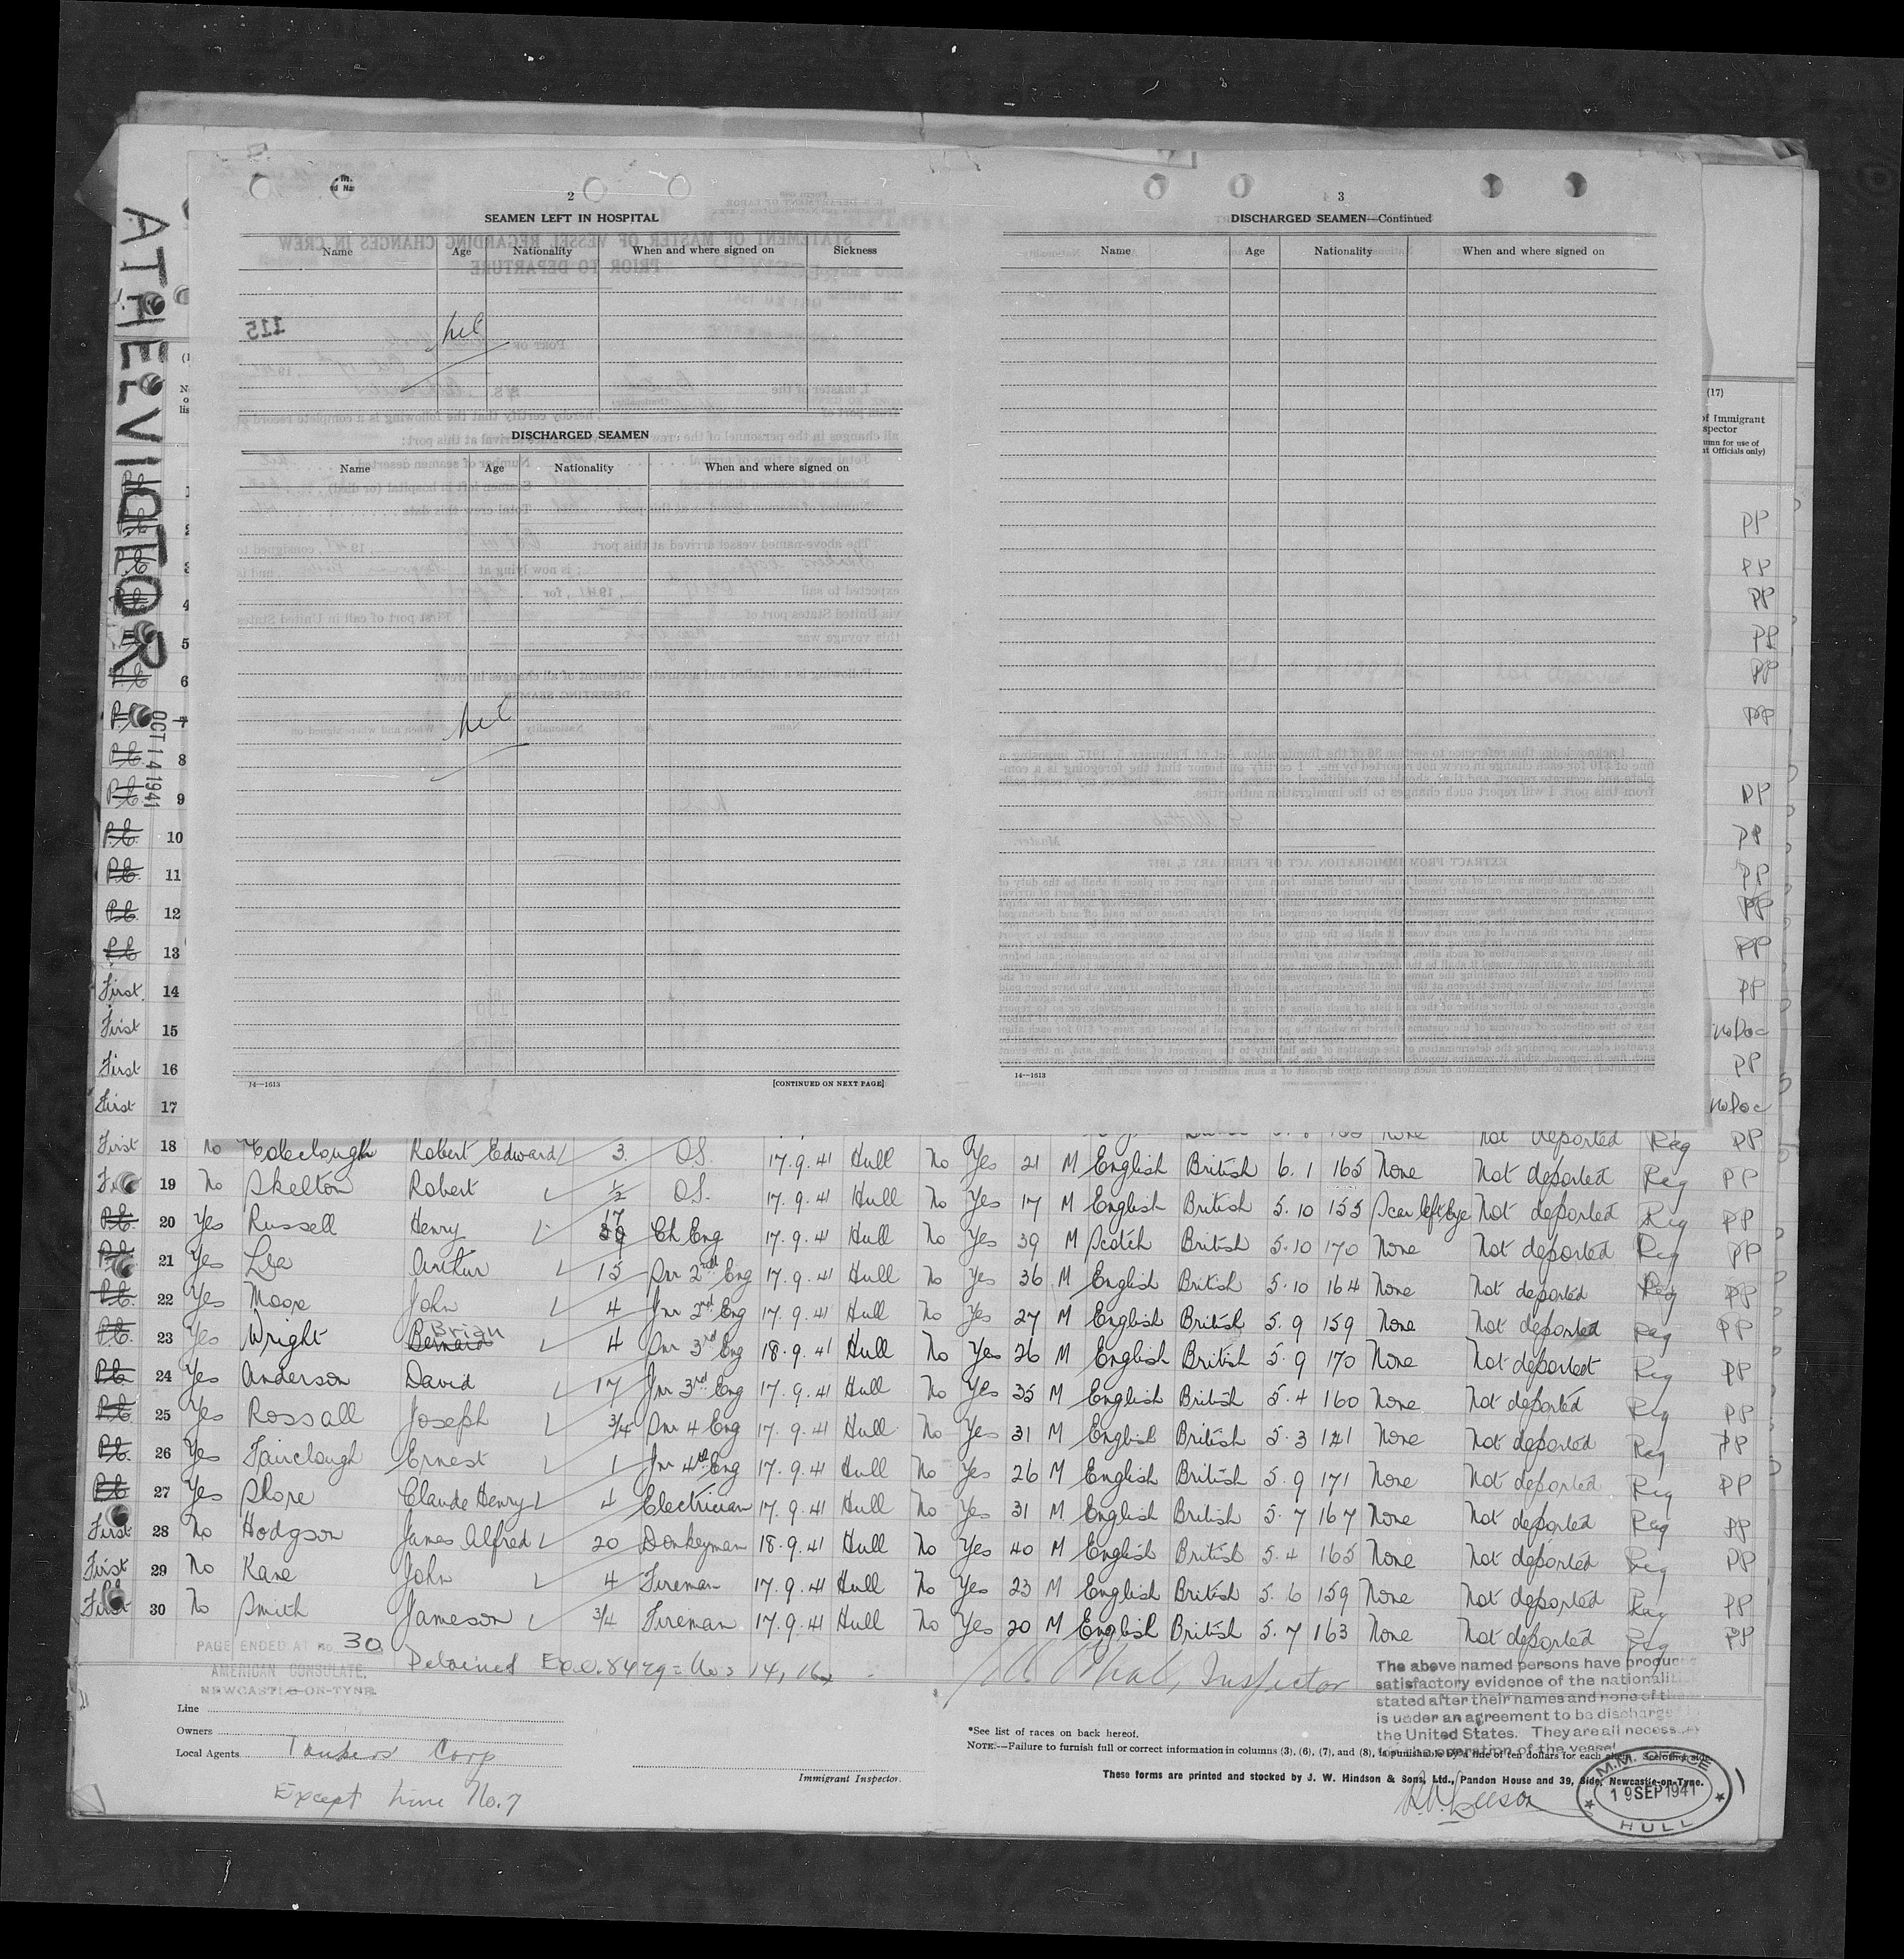 ATHELVICTOR
OCT 14 1941
2
SEAMEN LEFT IN HOSPITAL
Name Age Nationality When and where signed on Sickness
nil
115
DISCHARGED SEAMEN
Name Age Nationality When and where signed on
nil
14—1613 [CONTINUED ON NEXT PAGE]
3
DISCHARGED SEAMEN—Continued
Name Age Nationality When and where signed on
14—1613
(17)
of Immigrant
spector
umn for use of
nt Officials only)
1 PP
2 PP
3 PP
4 PP
5 PP
6 PP
7
8 PP
9 PP
10 PP
11 PP
12 PP
13 PP
First 14 no Doc
First 15 PP
First 16 no Doc
First 17 PP
First 18 No Coleclough Robert Edward 3 OS. 17.9.41 Hull No Yes 21 M English British 6.1 165 None Not deported Reg PP
19 No Skelton Robert 1/2 OS. 17.9.41 Hull No Yes 17 M English British 5.10 155 Scar left eye Not deported Reg PP
P.E. 20 Yes Russell Henry 17 Ch Eng 17.9.41 Hull No Yes 39 M Scotch British 5.10 170 None Not deported Reg PP
P.E. 21 Yes Lea Arthur 15 Snr 2nd Eng 17.9.41 Hull No Yes 36 M English British 5.10 164 None Not deported Reg PP
P.E. 22 Yes Moore John 4 Jnr 2nd Eng 17.9.41 Hull No Yes 27 M English British 5.9 159 None Not deported Reg PP
P.E. 23 Yes Wright Bernard Brian 4 Snr 3rd Eng 18.9.41 Hull No Yes 26 M English British 5.9 170 None Not deported Reg PP
P.E. 24 Yes Anderson David 17 Jnr 3rd Eng 17.9.41 Hull No Yes 35 M English British 5.4 160 None Not deported Reg PP
P.E. 25 Yes Rossall Joseph 3/4 Snr 4 Eng 17.9.41 Hull No Yes 31 M English British 5.3 121 None Not deported Reg PP
P.E. 26 Yes Fairclough Ernest 1 Jnr 4th Eng 17.9.41 Hull No Yes 26 M English British 5.9 171 None Not deported Reg PP
P.E. 27 Yes Shore Claude Henry 4 Electrician 17.9.41 Hull No Yes 31 M English British 5.7 167 None Not deported Reg PP
First 28 No Hodgson James Alfred 20 Donkeyman 18.9.41 Hull No Yes 40 M English British 5.4 165 None Not deported Reg PP
First 29 No Kane John 4 Fireman 17.9.41 Hull No Yes 23 M English British 5.6 159 None Not deported Reg PP
First 30 No Smith Jameson 3/4 Fireman 17.9.41 Hull No Yes 20 M English British 5.7 163 None Not deported Reg PP
PAGE ENDED AT No. 30
AMERICAN CONSULATE,
NEWCASTLE-ON-TYNE.
Detained E.O. 8429 = Nos 14, 16
Inspector
The above named persons have produced
satisfactory evidence of the nationaliti
stated after their names and none of the
is under an agreement to be discharged
the United States. They are all necessary
for the operation of the vessel
Line
Owners
Local Agents Tankers Corp
Immigrant Inspector.
Except line No. 7
*See list of races on back hereof.
NOTE.—Failure to furnish full or correct information in columns (3), (6), (7), and (8), is punishable by a fine of ten dollars for each alien. See other side
These forms are printed and stocked by J. W. Hindson & Sons, Ltd., Pandon House and 39, Side, Newcastle-on-Tyne.
M.M. OFFICE
19 SEP 1941
HULL